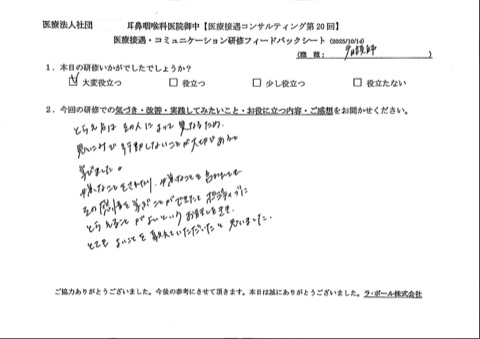 医療法人社団　　　耳鼻咽喉科医院御中【医療接遇コンサルティング第20回】
医療接遇・コミュニケーション研修フィードバックシート (2025/10/14)
（職種：看護師）
1．本日の研修いかがでしたでしょうか？
☑ 大変役立つ　□ 役立つ　□ 少し役立つ　□ 役立たない
2．今回の研修での気づき・改善・実践してみたいこと・お役に立つ内容・ご感想をお聞かせください。
とらえ方は その人によって 異なるため、
思いこみで 行動しないことが大切であると
学びました。
嫌なことをされたり、嫌なことを言われても
その感情を学ぶことができたと ポジティブに
とらえることが よいという お話しをきき
とても よいことを 教えていただいたと 思いました。
ご協力ありがとうございました。今後の参考にさせて頂きます。本日は誠にありがとうございました。ラ・ポール株式会社